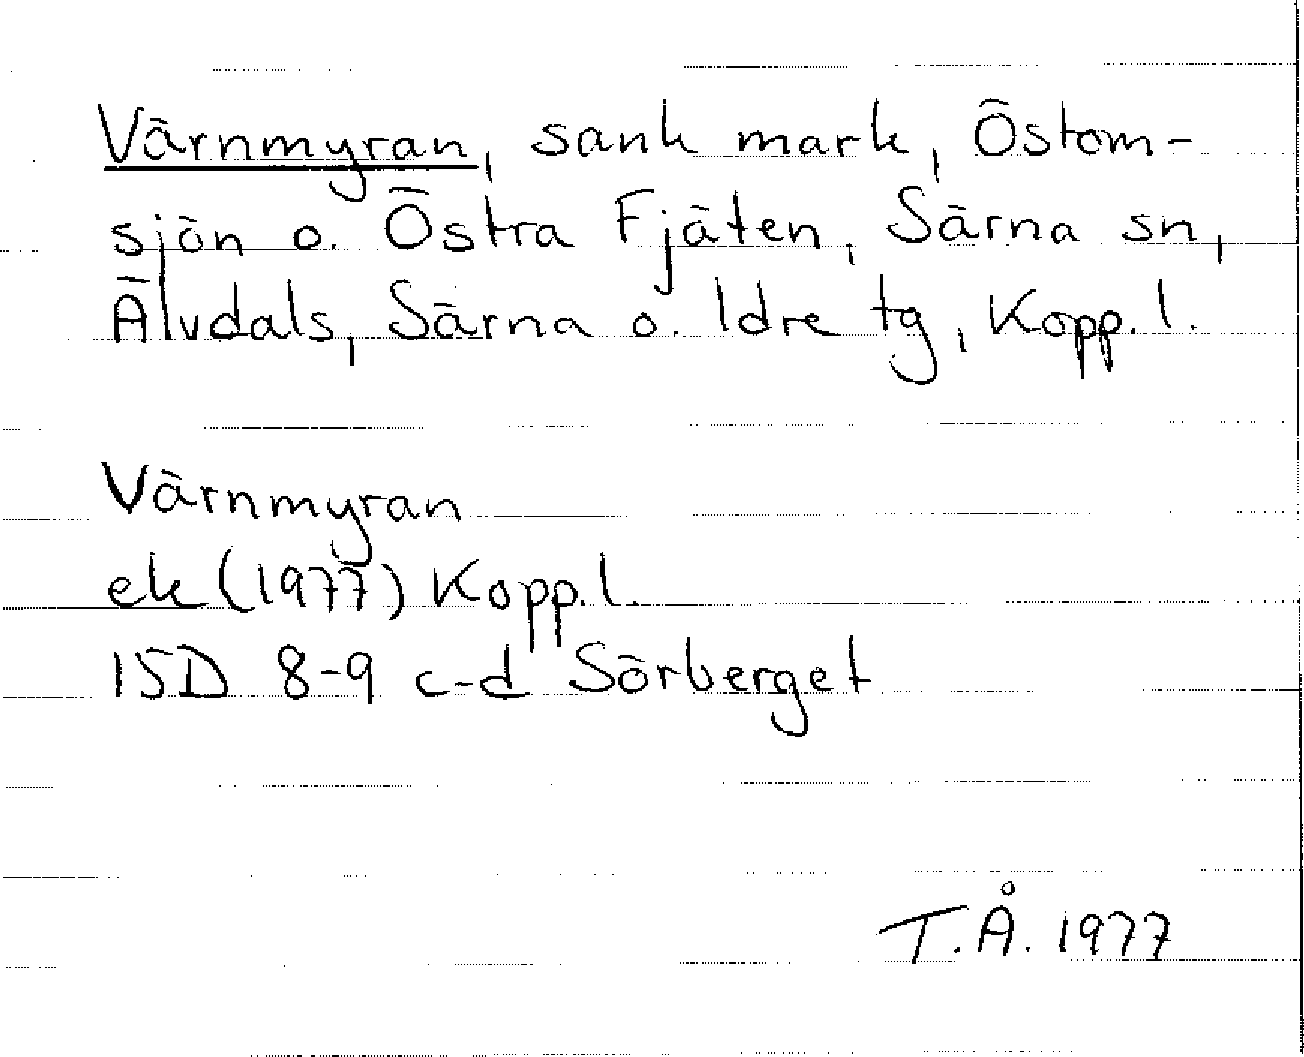 Värnmyran, sank mark, Östom-
sjön o. Östra Fjäten, Särna sn,
Älvdals, Särna o. Idre tg, Kopp. l.
Värnmyran
ek (1977) Kopp. l.
15D 8-9 c-d Sörberget
T.Å. 1977